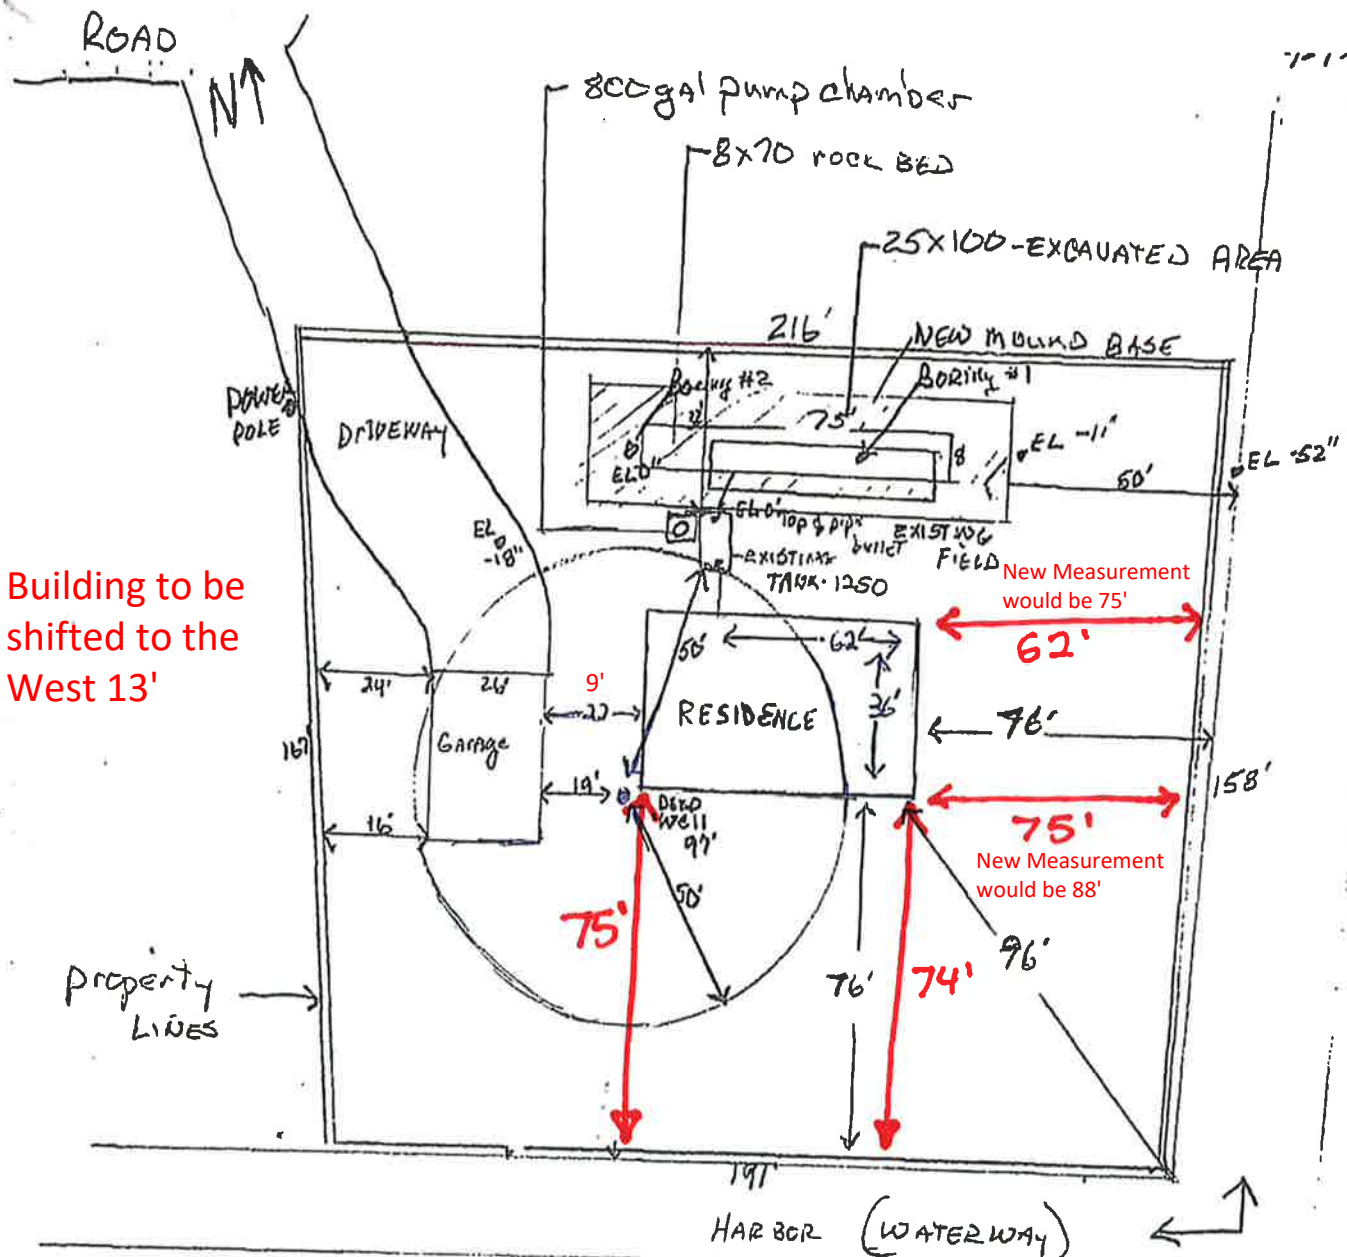 ROAD
N
800 gal pump chamber
8x70 rock BED
25x100-EXCAVATED AREA
216'
NEW MOUND BASE
Boring #2
BORING #1
POWER
POLE
DRIVEWAY
75'
8
EL -11"
EL -52"
50'
EL 0"
EL 0"
Top of pipe
EXISTING
FIELD
EL
-18"
EXISTING
TANK-1250
Building to be
shifted to the
West 13'
New Measurement
would be 75'
62'
50'
62'
36'
24'
26'
9'
22
RESIDENCE
76'
167'
Garage
19'
DEEP
WELL
97'
158'
75'
16'
New Measurement
would be 88'
50'
75'
76'
74'
96'
property
LINES
191'
HARBOR (WATERWAY)